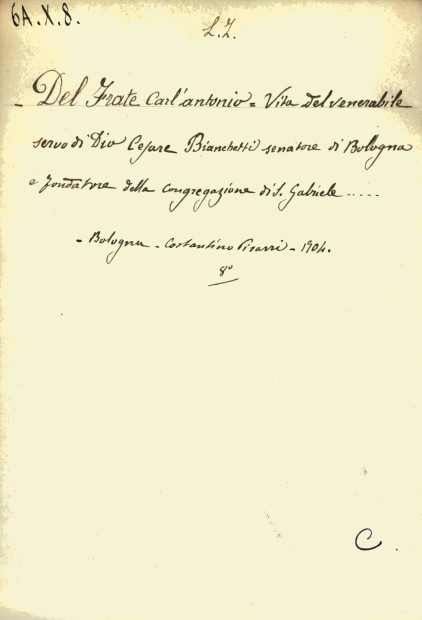 6A.X.8.
L.Z.
- Del Frate Carl'antonio = Vita del venerabile
servo di Dio Cesare Bianchetti senatore di Bologna
e fondatore della congregazione di S. Gabriele .....
- Bologna - Costantino Pisarri - 1704.
8°
C.